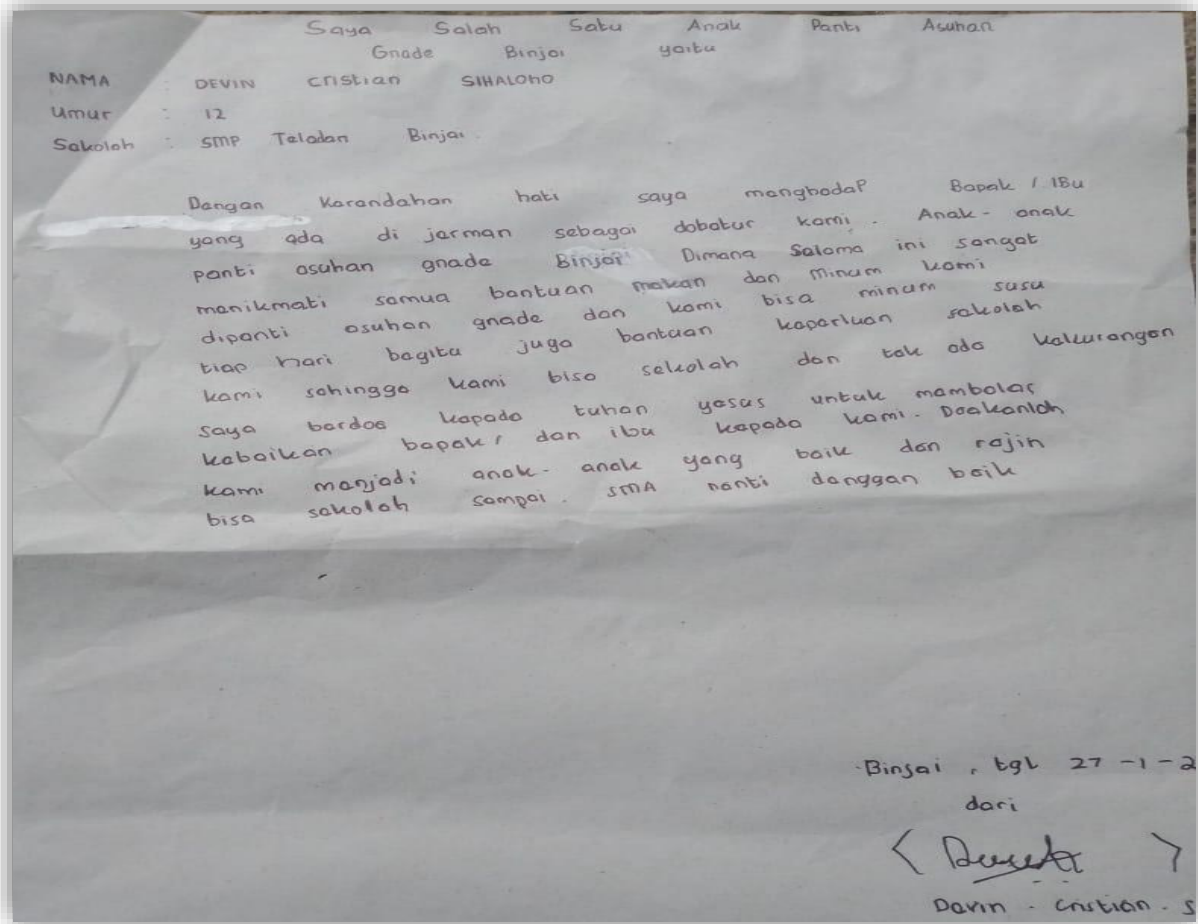 Saya Salah Satu Anak Panti Asuhan
Gnade Binjai yaitu
NAMA : DEVIN Cristian SIHALOHO
Umur : 12
Sakolah : SMP Teladan Binjai
Dangan Karandahan hati saya manghadap Bapak / IBu
yang ada di jarman sebagai dobatur kami. Anak-anak
panti asuhan gnade Binjai Dimana Salama ini sangat
manikmati samua bantuan makan dan minum kami
dipanti asuhan gnade dan kami bisa minum susu
tiap hari bagitu juga bantuan kaparluan sakolah
kami sahingga kami bisa sekolah dan tak ada kakurangan
saya bardoa kapada tuhan yasus untuk mambalas
kabaikan bapak/ dan ibu kapada kami. Doakanlah
kami manjadi anak-anak yang baik dan rajin
bisa sakolah sampai. SMA nanti danggan baik
Binjai, tgl 27-1-2
dari
Davin - cristian - S